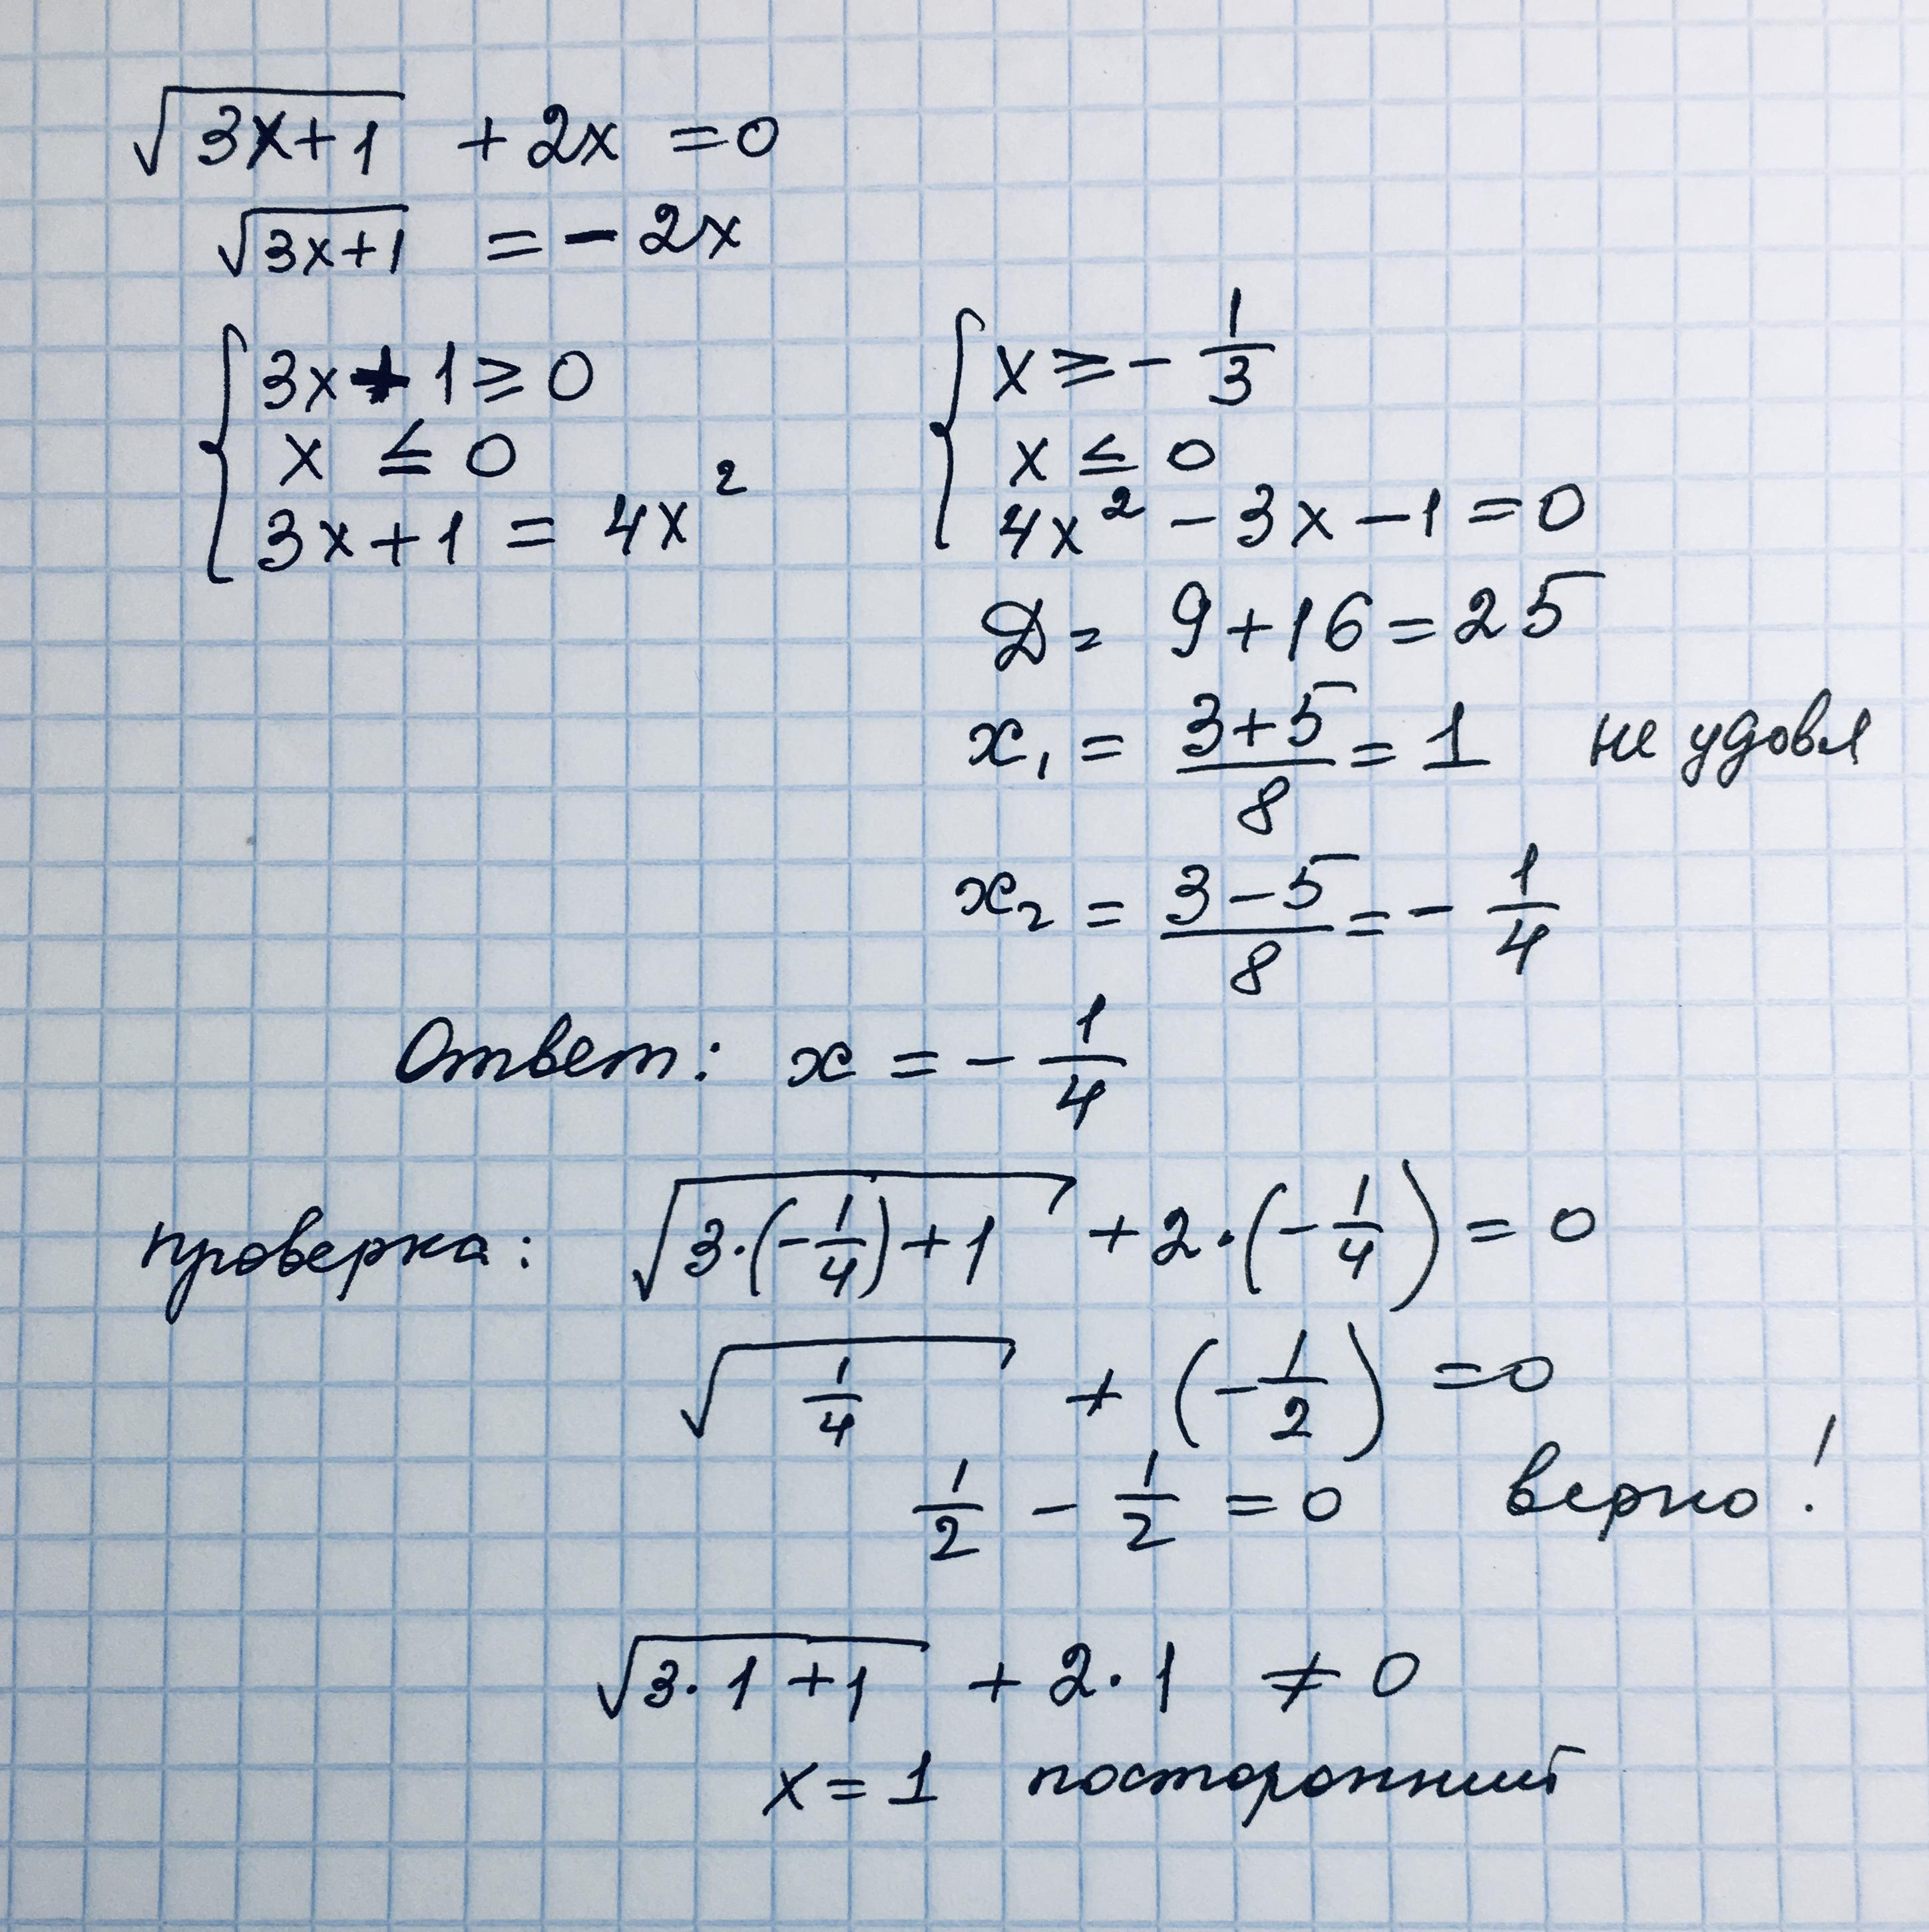 √(3x+1) + 2x = 0
√(3x+1) = - 2x
{ 3x + 1 ≥ 0
x ≤ 0
3x + 1 = 4x²
{ x ≥ - 1/3
x ≤ 0
4x² - 3x - 1 = 0
D = 9 + 16 = 25
x₁ = (3+5)/8 = 1 не удовл
x₂ = (3-5)/8 = - 1/4
Ответ: x = - 1/4
проверка: √(3·(-1/4)+1) + 2·(-1/4) = 0
√(1/4) + (-1/2) = 0
1/2 - 1/2 = 0 верно!
√(3·1+1) + 2·1 ≠ 0
x = 1 посторонний